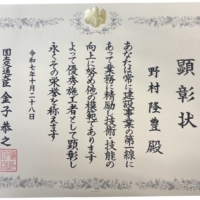 顕彰状
野村隆豊殿
あなたは常に建設事業の第一線に
あって業務に精励し技術・技能の
向上に努め他の模範であります
よって優秀施工者として顕彰し
永くその栄誉を称えます
令和七年十月二十八日
国土交通大臣 金子恭之